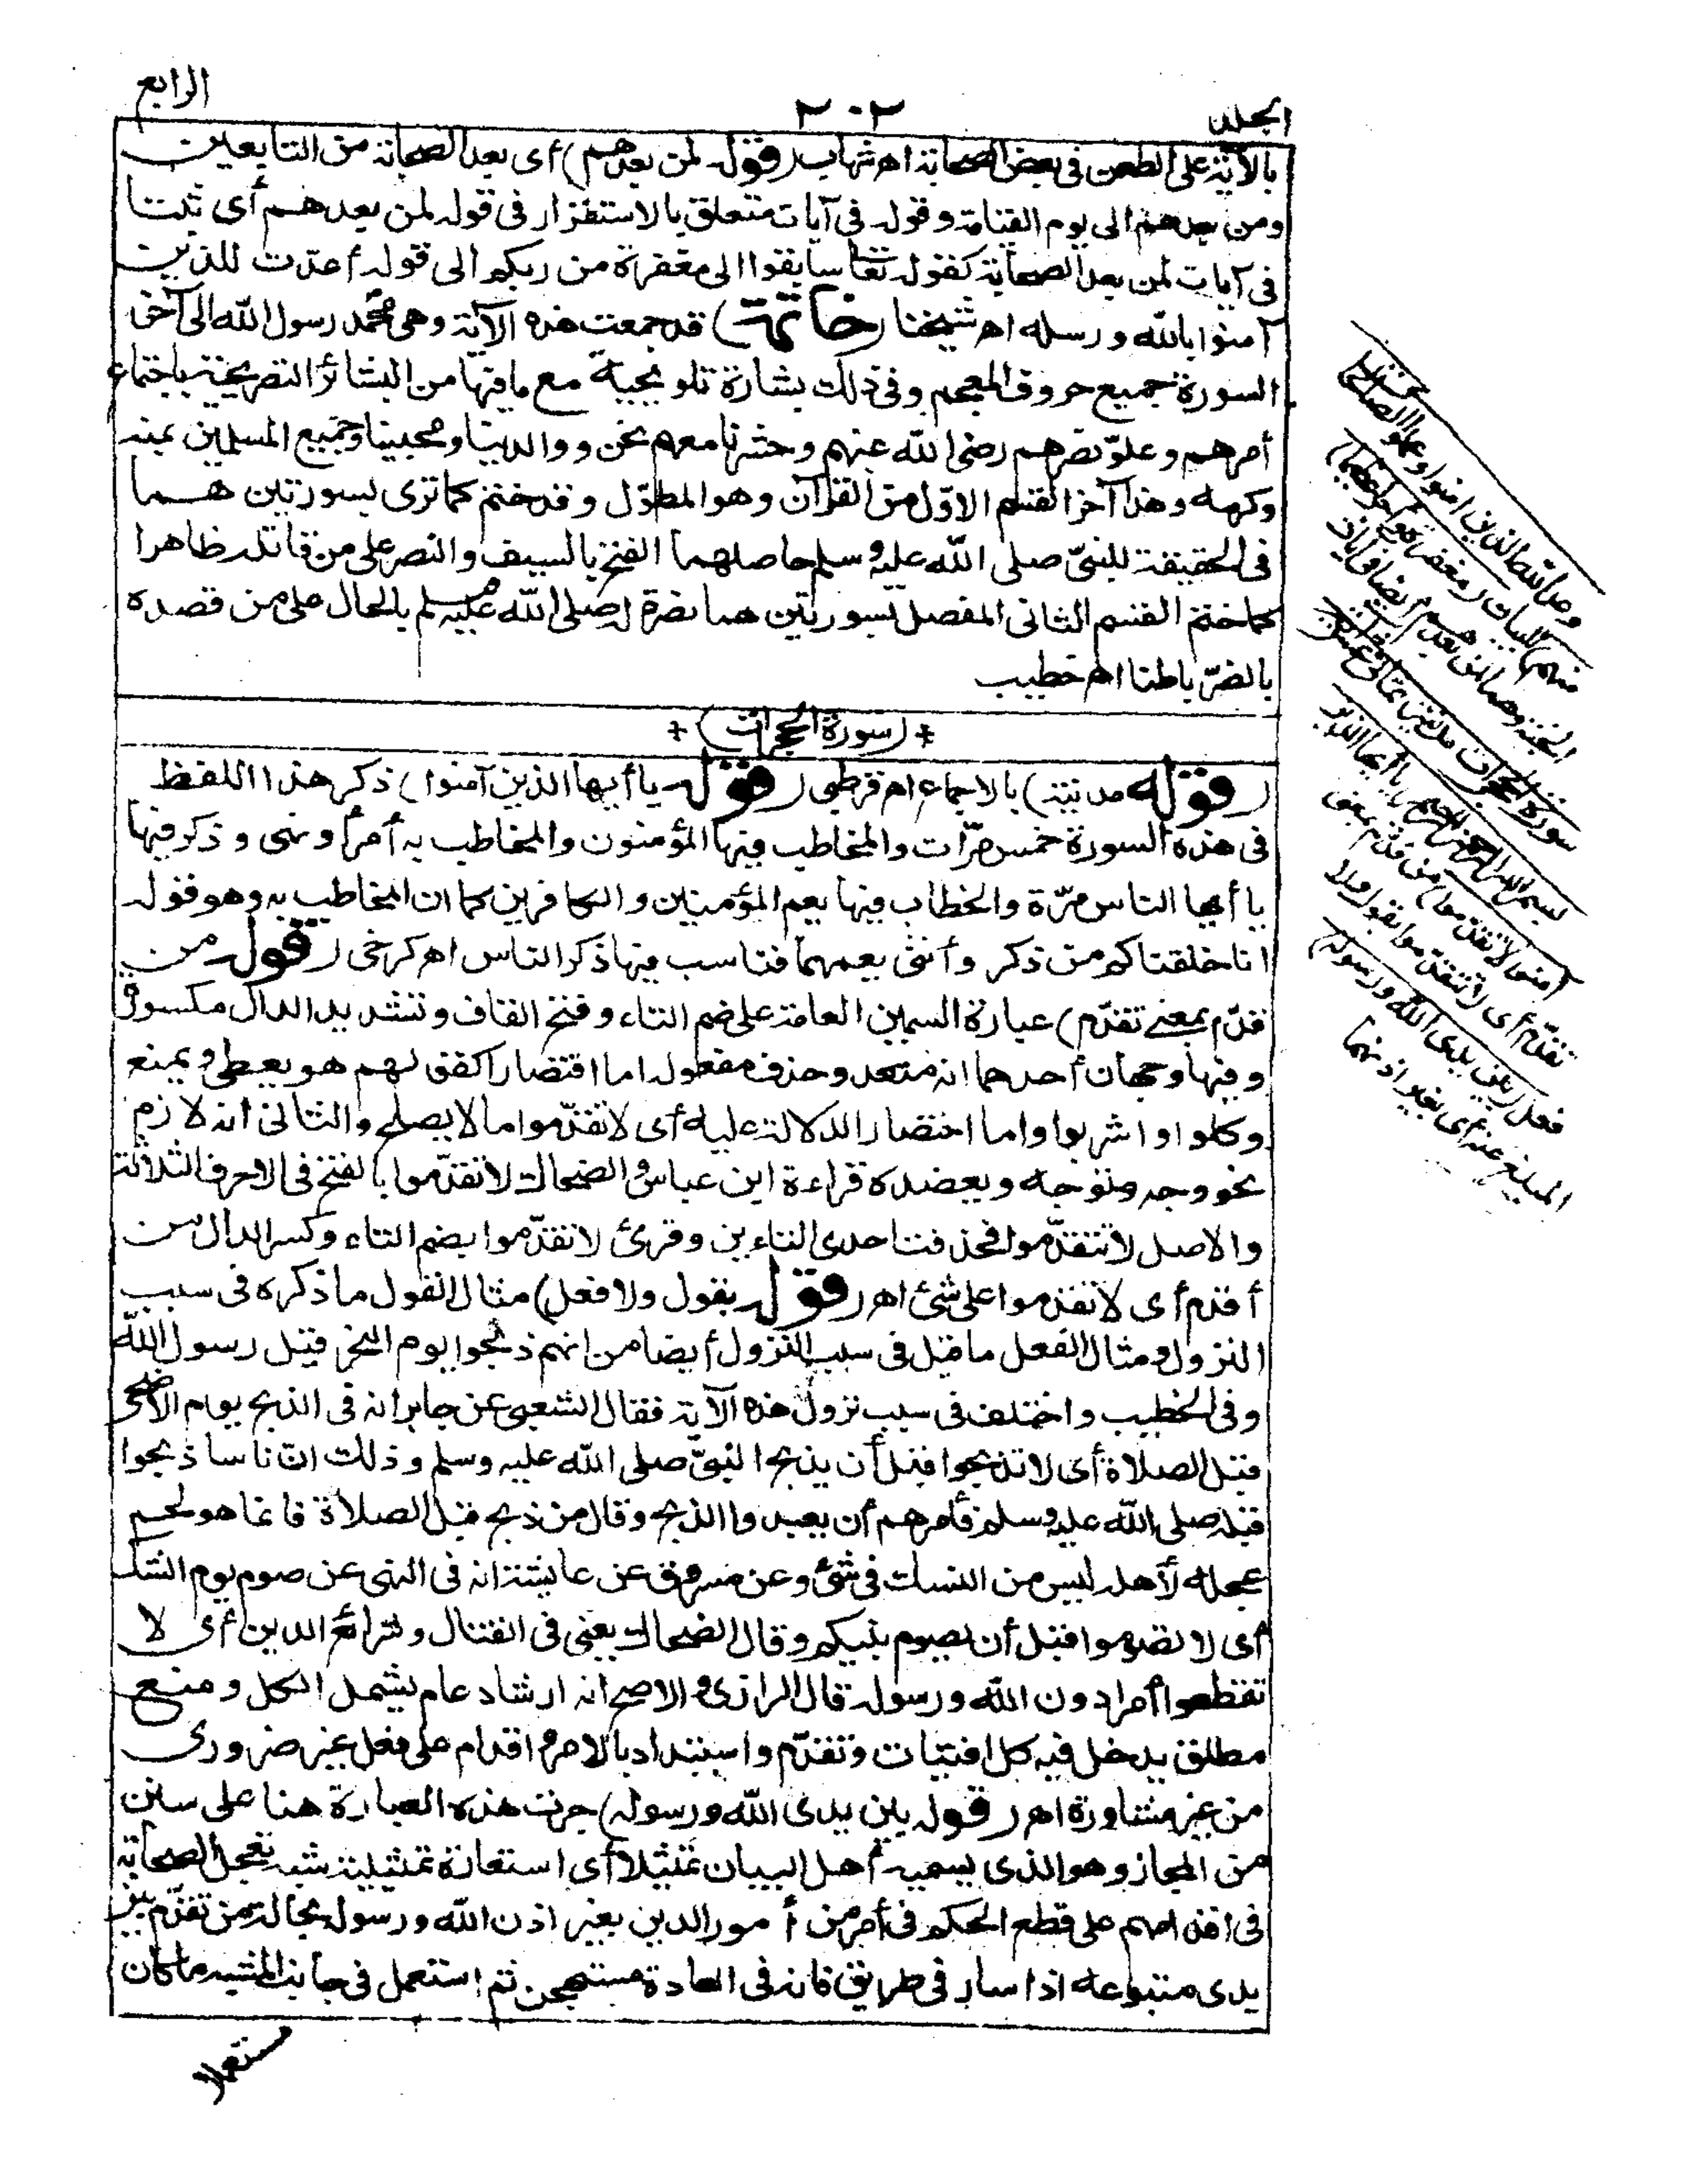 الجلد
٢٠٢
الرابع
بالآية على الطعن فى بعض الصحابة اهـ شهاب (قوله لمن بعدهم) أى بعد الصحابة من التابعين
ومن بعدهم الى يوم القيامة وقوله فى آيات متعلق بالاستقرار فى قوله لمن بعدهم أى ثبتا
فى آيات لمن بعد الصحابة كقوله تعالى سابقوا الى مغفرة من ربكم الى قوله أعدت للذين
آمنوا بالله ورسله اهـ شيخنا (خاتمة) قد جمعت هذه الآية وهى محمد رسول الله الى آخر
السورة جميع حروف المعجم وفى ذلك بشارة تلويحية مع ما فيها من البشائر التصريحية باجتماع
أمرهم وعلوّ نصرهم رضى الله عنهم وحشرنا معهم نحن ووالدينا ومحبينا وجميع المسلمين بمنه
وكرمه وهذا آخر القسم الاوّل من القرآن وهو المطوّل وقد ختم كما ترى بسورتين هما
فى الحقيقة للنبىّ صلى الله عليه وسلم حاصلهما الفتح بالسيف والنصر على من قاتله ظاهرا
كما ختم القسم الثانى المفصل بسورتين هما نصرة له صلى الله عليه وسلم بالحال على من قصده
بالضرّ باطنا اهـ خطيب
(سورة الحجرات)
(قوله مدنية) بالاجماع اهـ قرطبى (قوله يا أيها الذين آمنوا) ذكر هذا اللفظ
فى هذه السورة خمس مرّات والمخاطب فيها المؤمنون والمخاطب به أمر أو نهى وذكر فيها
يا أيها الناس مرّة والخطاب فيها يعم المؤمنين والكافرين كما ان المخاطب به وهو قوله
انا خلقناكم من ذكر وأنثى يعمهما فناسب فيها ذكر الناس اهـ كرخى (قوله من
قدّم بمعنى تقدّم) عبارة السمين العامة على ضم التاء وفتح القاف وتشديد الدال مكسورة
وفيها وجهان أحدهما انه متعد وحذف مفعوله اما اقتصارا كقولهم هو يعطى ويمنع
وكلوا واشربوا واما اختصارا للدلالة عليه أى لا تقدّموا ما لا يصلح والثانى انه لازم
نحو وجه وتوجه ويعضده قراءة ابن عباس والضحاك لا تقدّموا بالفتح فى الاحرف الثلاثة
والاصل لا تتقدّموا فحذفت احدى التاءين وقرئ لا تقدّموا بضم التاء وكسر الدال من
أقدم أى لا تقدموا على شئ اهـ (قوله بقول ولا فعل) مثال القول ما ذكره فى سبب
النزول ومثال الفعل ما قيل فى سبب النزول أيضا من انهم ذبحوا يوم النحر قبل رسول الله
وفى الخطيب واختلف فى سبب نزول هذه الآية فقال الشعبى عن جابر انه فى الذبح يوم الأضحى
قبل الصلاة أى لا تذبحوا قبل أن يذبح النبىّ صلى الله عليه وسلم وذلك انّ ناسا ذبحوا
قبله صلى الله عليه وسلم فأمرهم أن يعيدوا الذبح وقال من ذبح قبل الصلاة فانما هو لحم
عجله لأهله ليس من النسك فى شئ وعن مسروق عن عايشة انه فى النهى عن صوم يوم الشك
أى لا تقدموا قبل أن يصوم نبيكم وقال الضحاك يعنى فى القتال وشرائع الدين أى لا
تقطعوا أمرا دون الله ورسوله قال الرازى والاصح انه ارشاد عام يشمل الكل ومنع
مطلق يدخل فيه كل افتيات وتقدّم واستبداد بالامر واقدام على فعل غير ضرورى
من غير مشاورة اهـ (قوله بين يدى الله ورسوله) جرت هذه العبارة هنا على سنن
من المجاز وهو الذى يسميه أهل البيان تمثيلا أى استعارة تمثيلية شبه تعجل الصحابة
فى اقدامهم على قطع الحكم فى أمر من أمور الدين بغير اذن الله ورسوله بحالة من تقدّم بين
يدى متبوعه اذا سار فى طريق فانه فى العادة مستهجن ثم استعمل فى جانب المشبه ما كان
مستعملا
وعد الله الذين امنوا وعملوا الصالحات
منهم مغفرة وأجرا عظيما
الجنة وهما لمن بعدهم أيضا فى آيات
سورة الحجرات مدنية ثمانى عشرة آية
بسم الله الرحمن الرحيم يا أيها الذين
امنوا لا تقدّموا من قدّم بمعنى
تقدّم أى لا تتقدّموا بقول ولا
فعل بين يدى الله ورسوله
المبلغ عنه أى بغير اذنهما